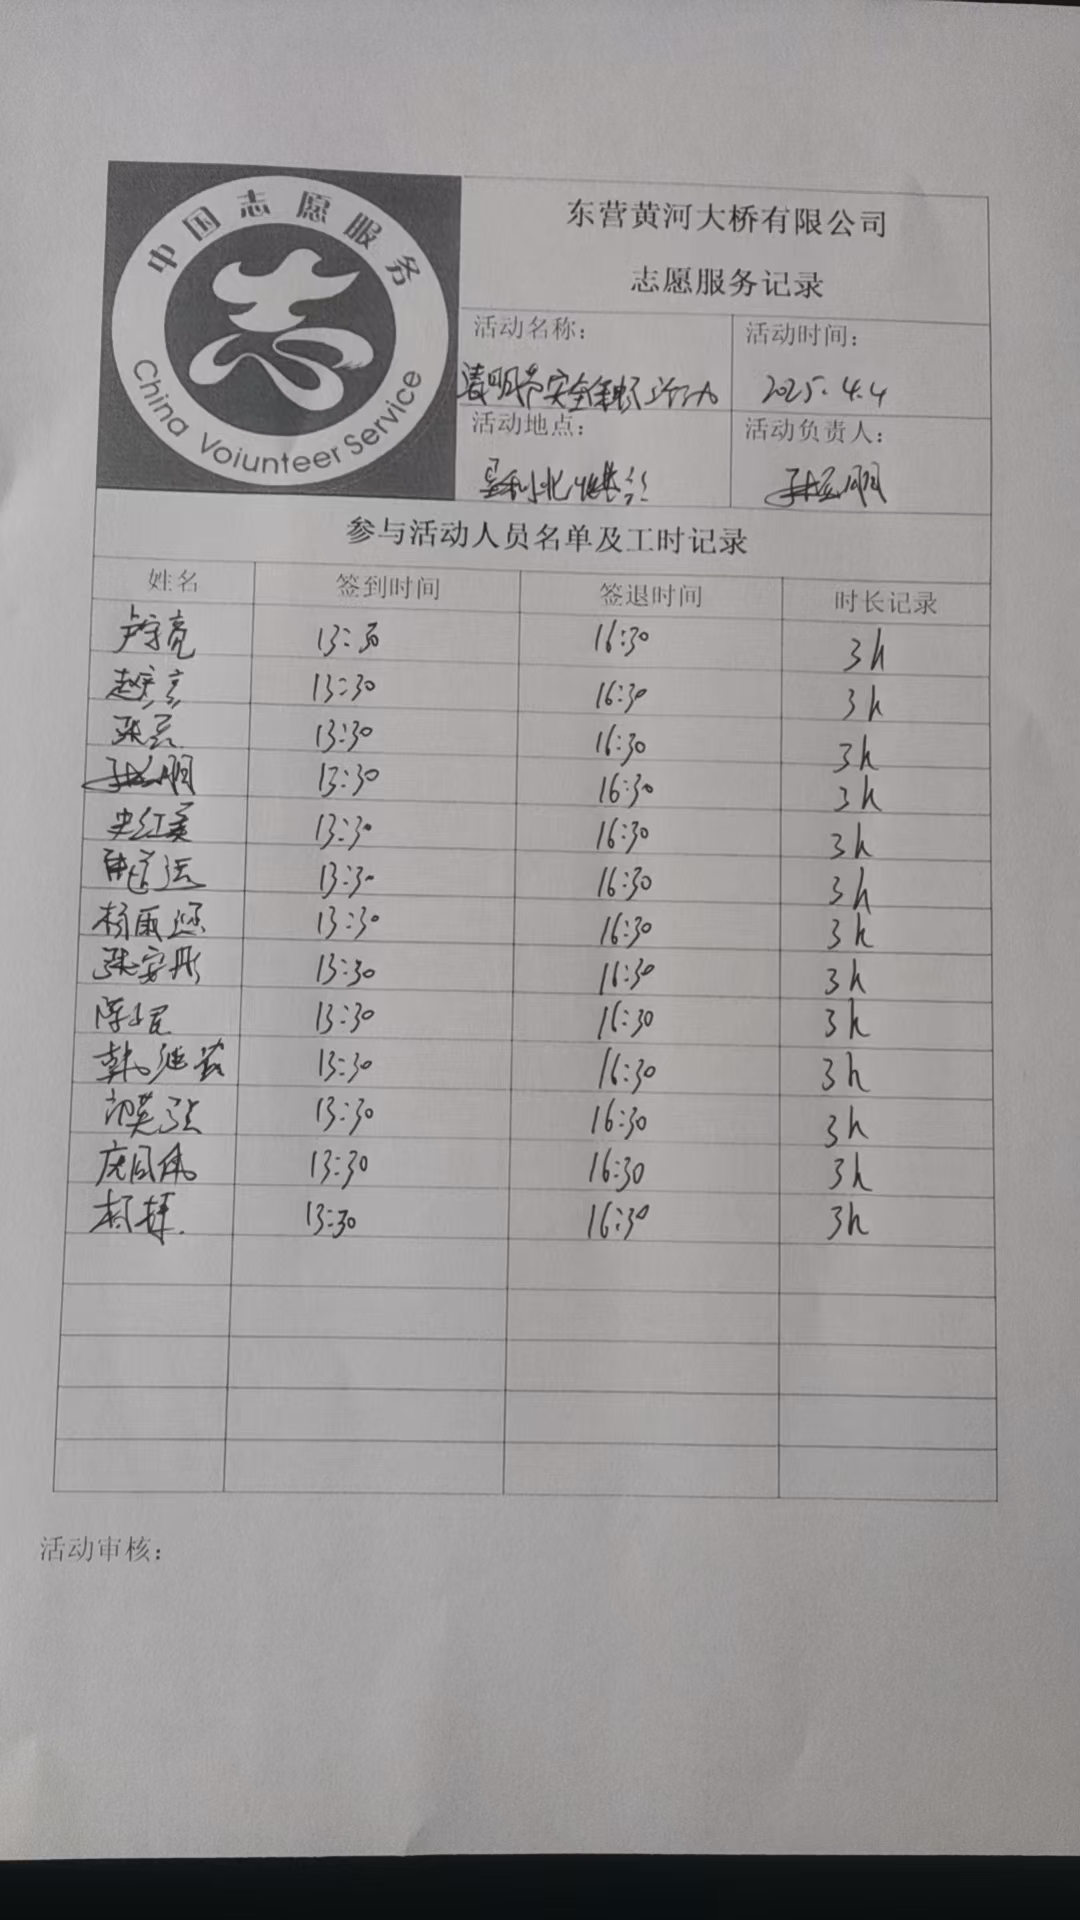 中国志愿服务
志
China Voiunteer Service
东营黄河大桥有限公司
志愿服务记录
活动名称:
活动时间:
清明节安全 活动
2025.4.4
活动地点:
活动负责人:
垦利北收费站
参与活动人员名单及工时记录
姓名 签到时间 签退时间 时长记录
13:30 16:30 3h
13:30 16:30 3h
张 13:30 16:30 3h
13:30 16:30 3h
史红美 13:30 16:30 3h
13:30 16:30 3h
杨雨 13:30 16:30 3h
张安彤 13:30 16:30 3h
陈 13:30 16:30 3h
韩继 13:30 16:30 3h
13:30 16:30 3h
13:30 16:30 3h
13:30 16:30 3h
活动审核: